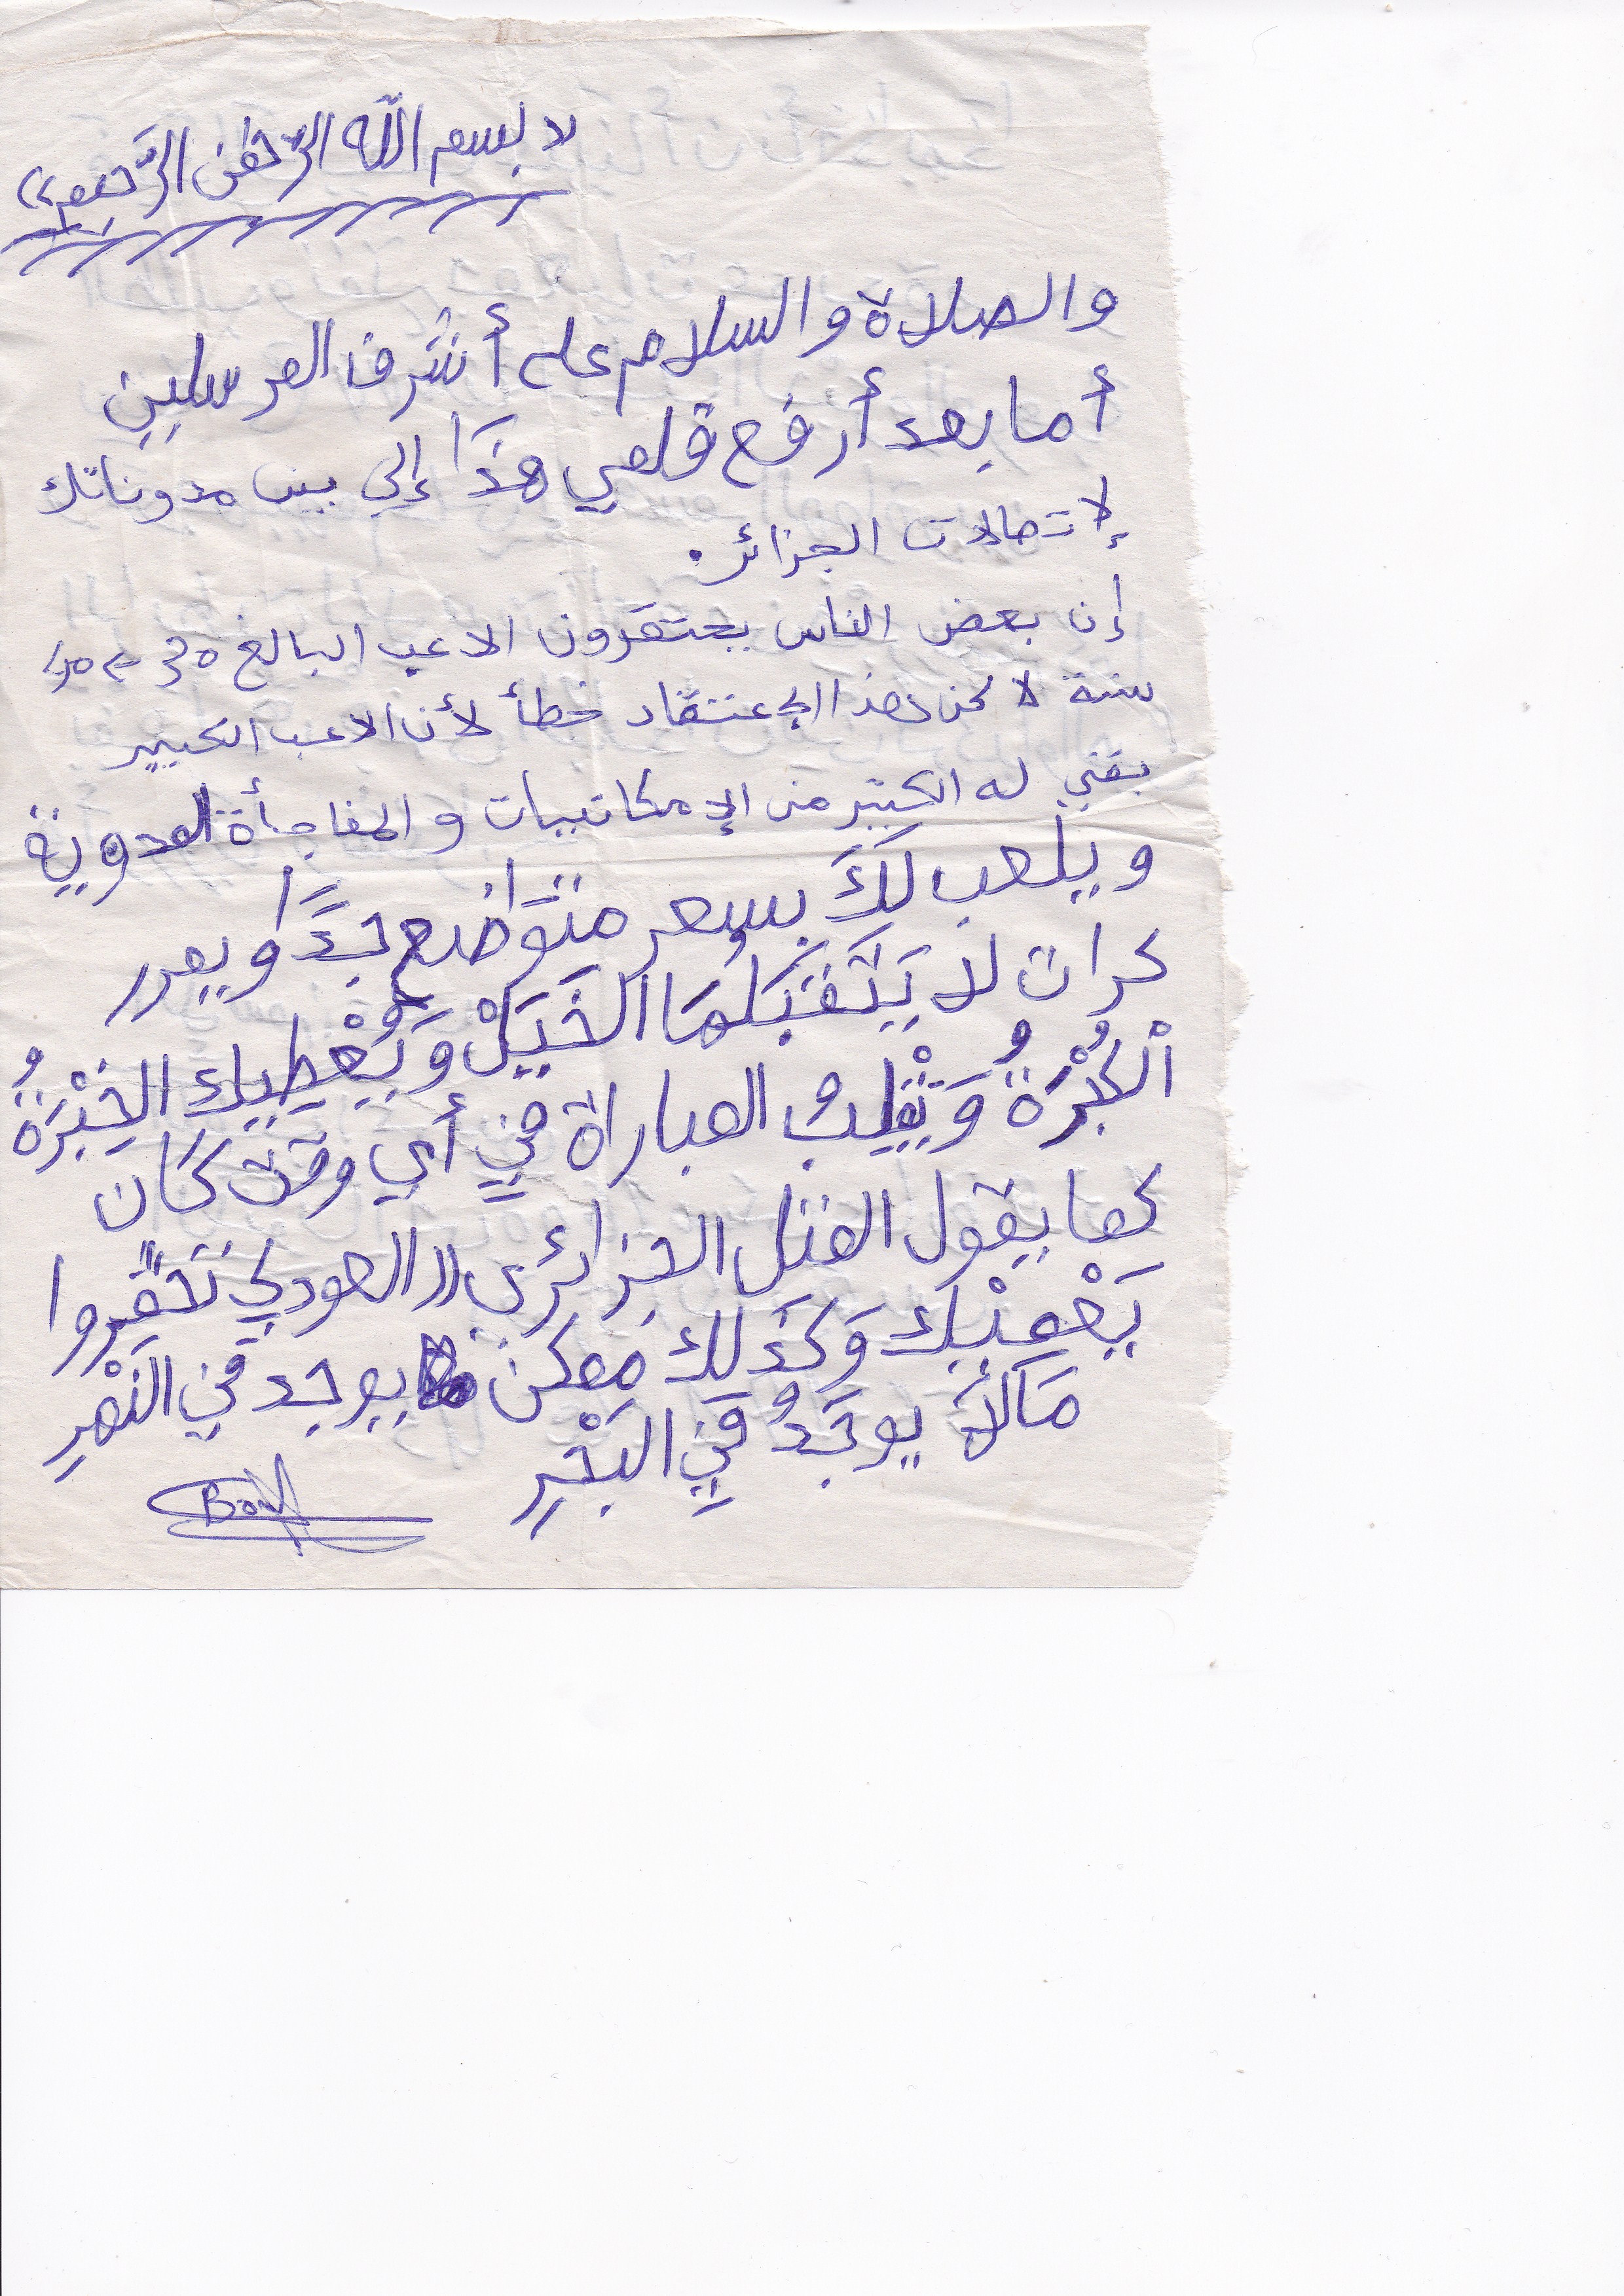 « بسم الله الرّحمٰن الرَّحيم »
والصلاة والسلام على أشرف المرسلين
أما بعد أرفع قلمي هذَا إلى بين مدوناتك
لإتصالات الجزائر.
إن بعض الناس يحتقرون الاعب البالغ 30 → 40
سنة لاكن هذا الإعتقاد خطأ لأن الاعب الكبير
بقي له الكثير من الإمكانيات و المفاجأة المدوية
و يلعب لَكَ بسعر متوَاضع جدًّا ويمرر
كرات لا يَتَقَبَلُهَا الخَيَلْ وَيُعْطِيك الخِبْرَةُ
الْكُبْرَةُ وَيَقْلِبُ المباراة فِي أي وقت كَان
كما يقول المثل الجزائري «العود لِي تَحَقِروا
يَعْمِيْك وَكذَلِكَ ممكن يوجد فِي النَهْرِ
مَالاَ يوجَدُ فِي البَحْرِ